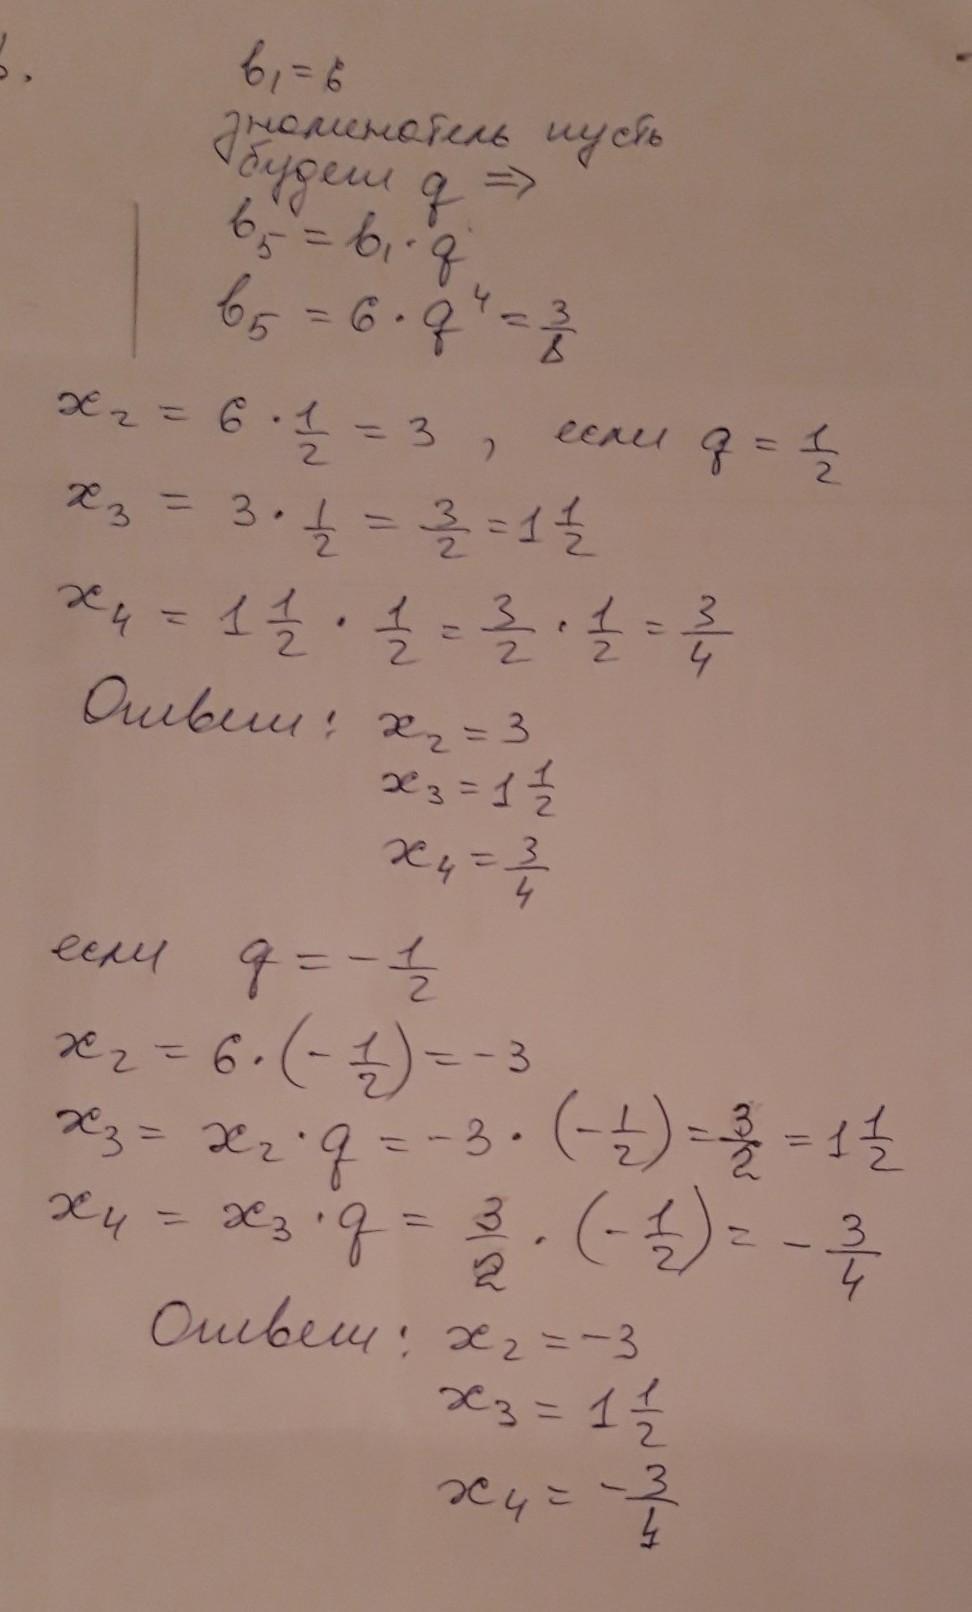 6.
b₁ = 6
знаменатель пусть
будет q ⇒
b₅ = b₁ · q
b₅ = 6 · q⁴ = 3/8
x₂ = 6 · 1/2 = 3 , если q = 1/2
x₃ = 3 · 1/2 = 3/2 = 1 1/2
x₄ = 1 1/2 · 1/2 = 3/2 · 1/2 = 3/4
Ответ: x₂ = 3
x₃ = 1 1/2
x₄ = 3/4
если q = - 1/2
x₂ = 6 · (- 1/2) = -3
x₃ = x₂ · q = -3 · (- 1/2) = 3/2 = 1 1/2
x₄ = x₃ · q = 3/2 · (- 1/2) = - 3/4
Ответ: x₂ = -3
x₃ = 1 1/2
x₄ = - 3/4